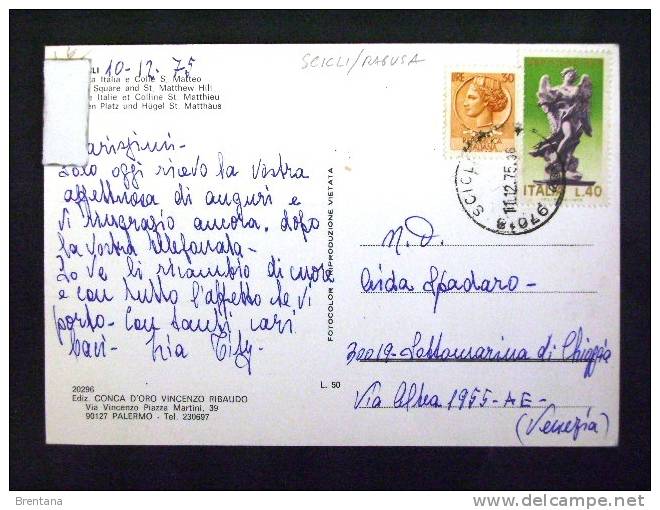 SCICLI/RAGUSA
LI 10-12-75
a Italia e Colle S. Matteo
Square and St. Matthew Hill
e Italie et Colline St. Matthieu
en Platz und Hügel St. Matthäus
arissimi -
Solo oggi ricevo la vostra
affettuosa di auguri e
vi ringrazio ancora, dopo
la vostra telefonata -
Io ve li ricambio di cuore
e con tutto l'affetto che vi
porto - Con tanti cari
baci - Zia Tity -
20296
Ediz. CONCA D'ORO VINCENZO RIBAUDO
Via Vincenzo Piazza Martini, 39
90127 PALERMO - Tel. 230697
FOTOCOLOR RIPRODUZIONE VIETATA
L. 50
LIRE 30
REPUBBLICA
ITALIANA
ITALIA L.40
97018 SCICLI
11.12.75
N. D.
Aida Spadaro -
30019 - Sottomarina di Chioggia
Via Altea 1955 - AE -
(Venezia)
Brentana
delcampe.net